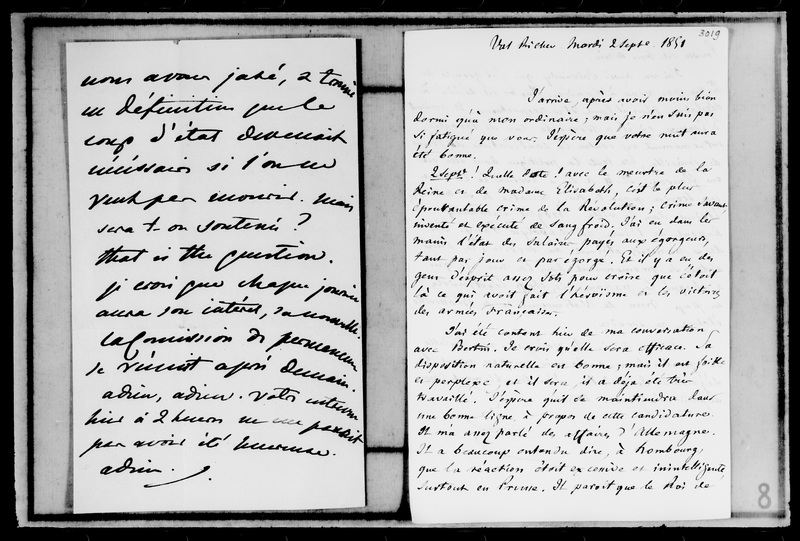 nous avons jasé, et trouvé
en définition que le
coup d'état devenait
nécéssaire si l'on ne
veut pas mourir. mais
sera t-on soutenu ?
that is the question.
je crois que chaque journée
aura son intéret, sa nouvelle.
la Comission de permanence
se réunit après demain.
adieu, adieu. votre
hier à 2 heures ne me parait
pas avoir été heureuse.
adieu.
3019
Val Richer Mardi 2 Septe 1851
J'arrive après avoir moins bien
dormi qu'à mon ordinaire ; mais je n'en suis pas
si fatigué que vous. J'espère que votre nuit aura
été bonne.
2 Septe ! Quelle date ! avec le meurtre de la
Reine et de Madame Elisabeth, c'est le plus
épouvantable crime de la Révolution ; crime
inventé et exécuté de sang froid. J'ai eu dans les
mains l'état des salaires payés aux égorgeurs,
tant par jour et par égorgé. Et il y a eu des
gens d'esprit assez sots pour croire que c'étoit
là ce qui avoit fait l'héroïsme et les victoires
des armées Françaises.
J'ai été content hier de ma conversation
avec Bertin. Je crois qu'elle sera efficace. Sa
disposition naturelle est bonne ; mais il est faible
et perplexe et il sera, il a déja été très
travaillé. J'espère qu'il se maintiendra dans
une bonne ligne à propos de cette candidature.
Il m'a assez parlé des affaires d'Allemagne.
Il a beaucoup entendu dire, à Hombourg,
que la réaction étoit excessive et inintelligente
surtout en Prusse. Il paroit que le Roi de
8